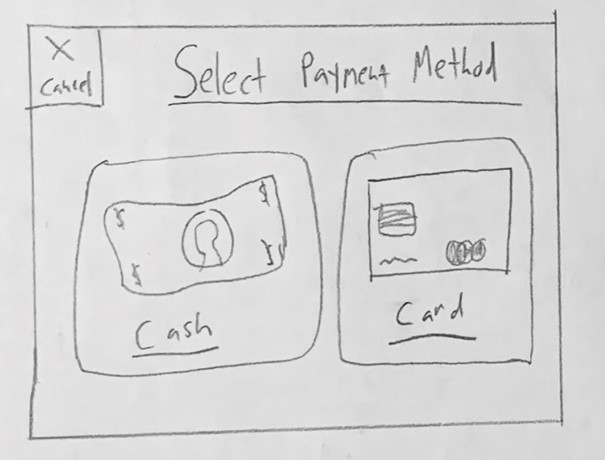 X
Cancel
Select Payment Method
$ $
$ $
Cash
Card